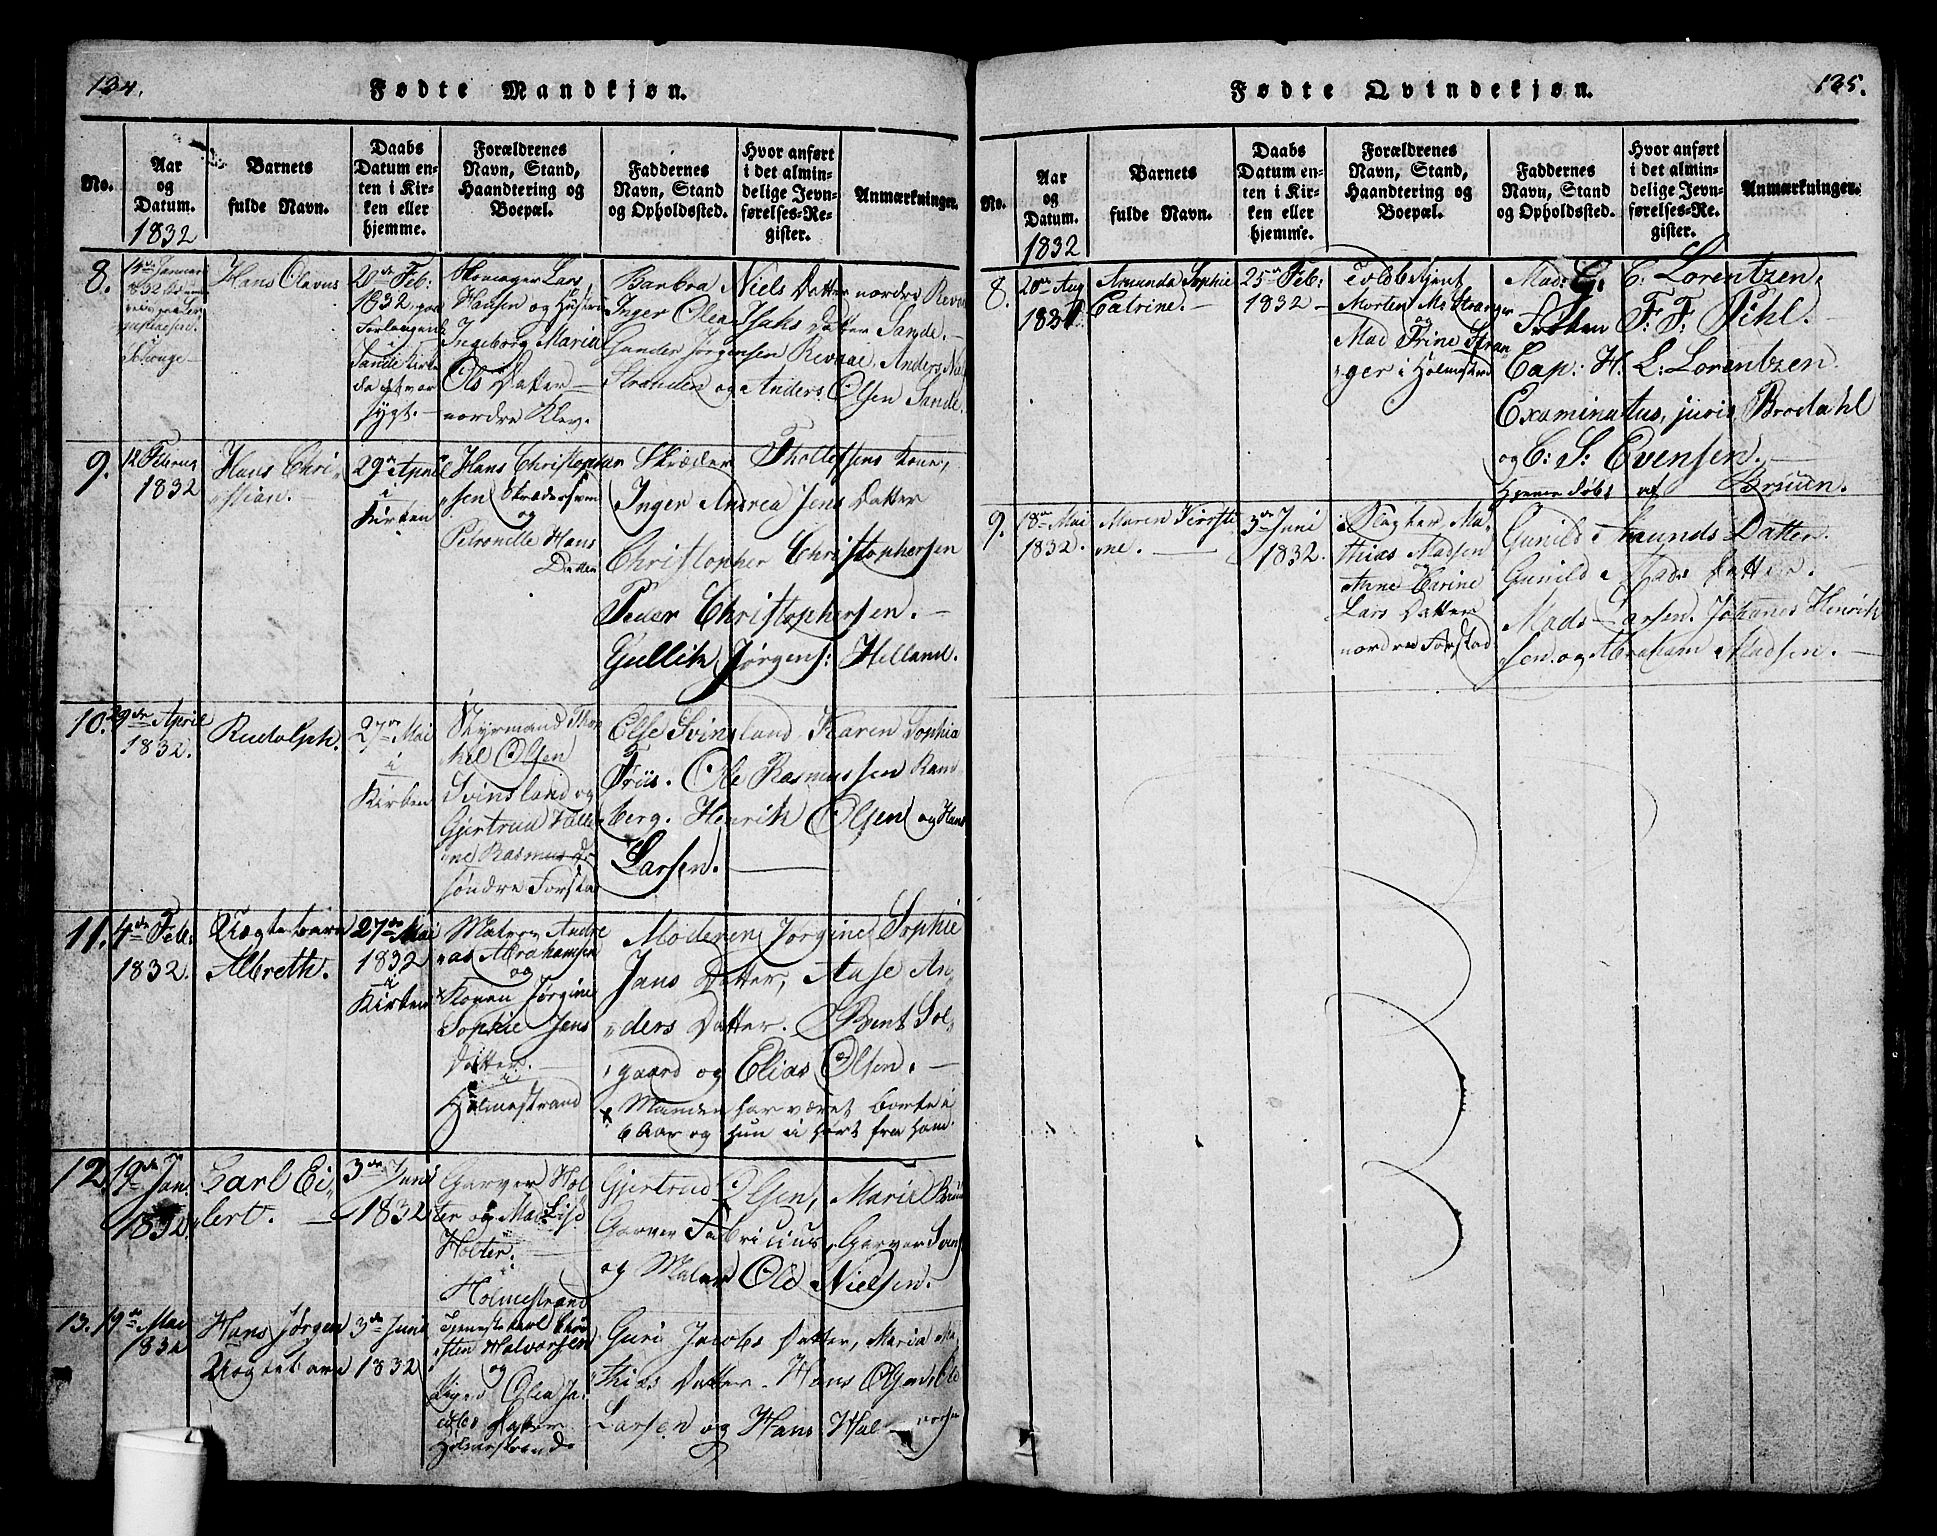 134.
Fødte Mandkjøn.
No.
Aar og Datum.
1832
Barnets fulde Navn.
Daabs Datum enten i Kirken eller hjemme.
Forældrenes Navn, Stand, Haandtering og Boepæl.
Faddernes Navn, Stand og Opholdssted.
Hvor anført i det almindelige Jevnførelses-Register.
Anmærkninger.
8.
Januar
1832
Hans Olavus
20de Feb:
1832 paa
Forlangende
i
Sande Kirke
da det var
sygt.
Lars
Hansen og Hustru
Ingeborg Maria
Ols Datter
nordre Klev.
Barbra Niels Datter nordre Revaa
Inger Olea Isaks Datter Sande.
Gunder Jørgensen Revaae, Anders
Stranden og Anders Olsen Sande.
9.
12 Februar
1832
Hans Chri-
stian.
29de April
i
Kirken
Hans Christopher
sen Skrædersvend
og
Petronelle Hans
Datter
Skræder Thollefsens Kone,
Inger Andrea Jens Datter
Christopher Christophersen
Peder Christophersen.
Gullik Jørgens: Helland.
10.
29de April
1832.
Rudolph.
27de Mai
i
Kirken
Styrmand Thor
kel Olsen
Svinsland og
Gjertrud
ine Rasmus D.
søndre Forstad
Else Svinsland, Karen Sophia
Friis. Ole Rasmussen Ram
berg. Henrik Olsen og Hans
Larsen.
11.
4de Feb.
1832.
Uægte barn
Albreth.
27de Mai
1832
i
Kirken
Matros Andre
as Abrahamsen
og
Konen Jørgine
Sophie Jens
Datter.
i
Holmestrand
Moderen Jørgine Sophie
Jans Datter, Aase An-
ders Datter. Bent Sol-
gaard og Elias Olsen.
x Manden har været borte i
6 Aar og hun ei hørt fra ham.
12.
19de Jan.
1832.
Carl Ei-
lert.
3de Juni
1832
Garver Hol
ter og Mad: Lise
Holter.
i
Holmestrand
Gjertrud Olsen, Marie
Garver Fabricius, Garver
og Maler Ole Nielsen.
13.
19de Mai
1832
Hans Jørgen
Uægte barn
3de Juni
1832
Tjenestekarl Chri
sten Halvorsen
og
Pigen Olea Ja-
cobs Datter
Holmestrande
Guri Jacobs Datter, Maria Ma
thias Datter. Hans Olsen, Ole
Larsen og Hans Hal-vorsen
135.
Fødte Qvindekjøn.
No.
Aar og Datum.
1832
Barnets fulde Navn.
Daabs Datum enten i Kirken eller hjemme.
Forældrenes Navn, Stand, Haandtering og Boepæl.
Faddernes Navn, Stand og Opholdssted.
Hvor anført i det almindelige Jevnførelses-Register.
Anmærkninger.
8.
20de Aug
1831.
Amunda Sophie
Catrine.
25de Feb:
1832
Toldbetjent
Morten M. Stranger
og
Mad Trine Stran
ger i Holmestrand
Mad: C: C: Lorentzen.
Frøken F: F: Pihl.
Cap: H. L: Lorentzen
Examinatus juris Brodahl
og C: S: Evensen.
Hjemmedøbt af Bruun.
9.
18de Mai
1832.
Maren Kirsti-
ne.
3de Juni
1832.
Slagter Ma-
thias Madsen
og
Anne Carine
Lars Datter
nordre Forstad
Gunild Amunds Datter.
Gunild Mads Datter.
Mads Larsen. Johanes Henrik
sen og Abraham Madsen.